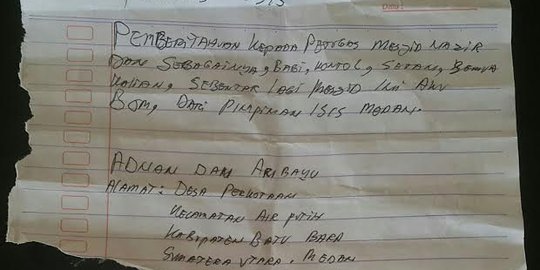 PEMBERITAHUAN KEPADA PETUGAS MESJID NAZIR
DAN SEBAGAINYA, BABI, KONTOL, SETAN, SEMUA
KALIAN, SEBENTAR LAGI MESJID INI AKU
BOM, DARI PIMPINAN ISIS MEDAN.
ADNAN DARI ARIBAYU
ALAMAT : DESA PERKOTAAN
KECAMATAN AIR PUTIH
KABUPATEN BATU BARA
SUMATERA UTARA. MEDAN